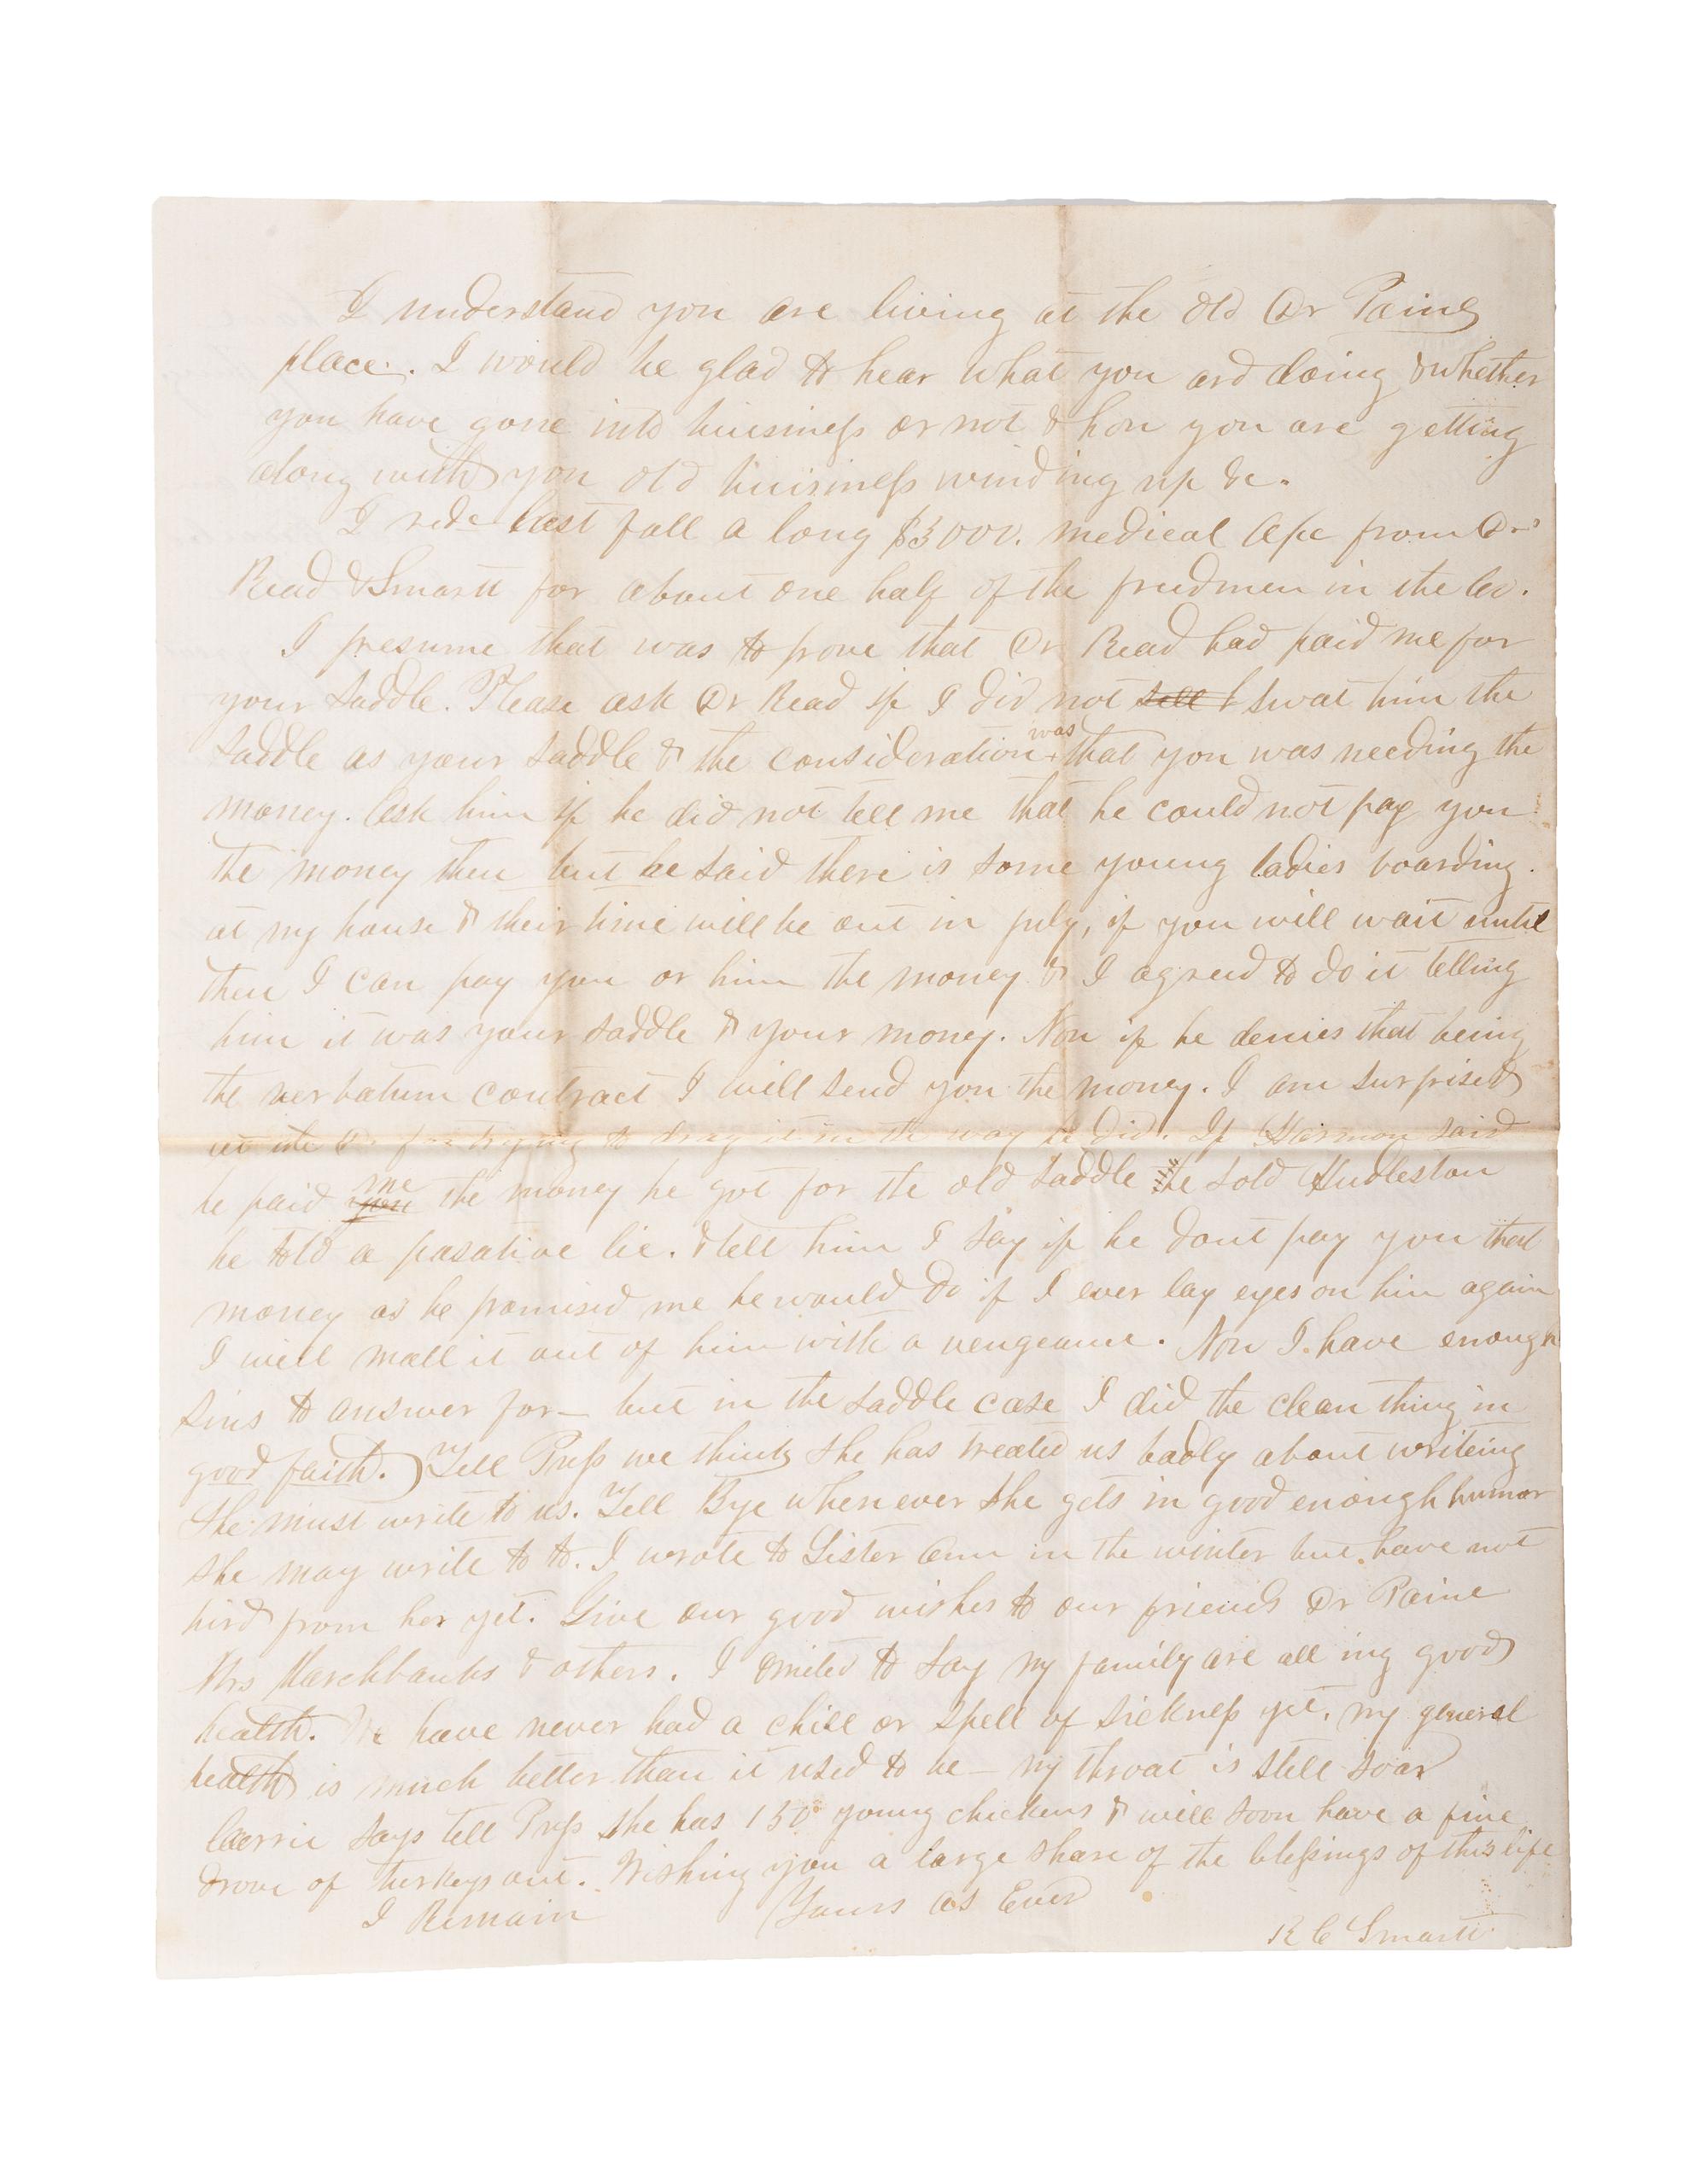 I understand you are living at the old Dr Paine
place. I would be glad to hear what you ard doing & whether
you have gone into buisiness or not & how you are getting
along with you old buisiness winding up &c.
I  last fall a long $3000. medical a/c from Drs
Read & Smartt for about one half of the freedmen in the Co.
I presume that was to prove that Dr Read had paid me for
your saddle. Please ask Dr Read if I did not sell t swat him the
saddle as your saddle & the consideration was that you was needing the
money. Ask him if he did not tell me that he could not pay you
the money then but he said there is some young ladies boarding
at my house & their time will be out in july, if you will wait until
then I can pay you or him the money & I agreed to do it telling
him it was your saddle & your money. Now if he denies that being
the verbatum contract I will send you the money. I am surprised
at the Dr for trying to drag it in the way he did. If Harmon said
he paid you me the money he got for the old saddle he sold Hudleston
he told a pasative lie. & tell him I say if he dont pay you that
money as he promised me he would do if I ever lay eyes on him again
I will mall it out of him with a vengeance. Now I have enough
sins to answer for — but in the saddle case I did the clean thing in
good faith. Tell Puss we think she has treated us badly about writeing
she must write to us. Tell Bye whenever she gets in good enough humor
she may write to to. I wrote to Sister Ann in the winter but have not
hird from her yet. Give our good wishes to our friends Dr Paine
Mrs Marchbanks & others. I omited to say my family are all ing good
health. We have never had a chill or spell of sickness yet. my general
health is much better than it used to be — my throat is still soar
Carrie says tell Puss she has 130 young chickens & will soon have a fine
drove of turkeys out. Wishing you a large share of the blessings of this life
I Remain Yours as Ever
R C Smartt